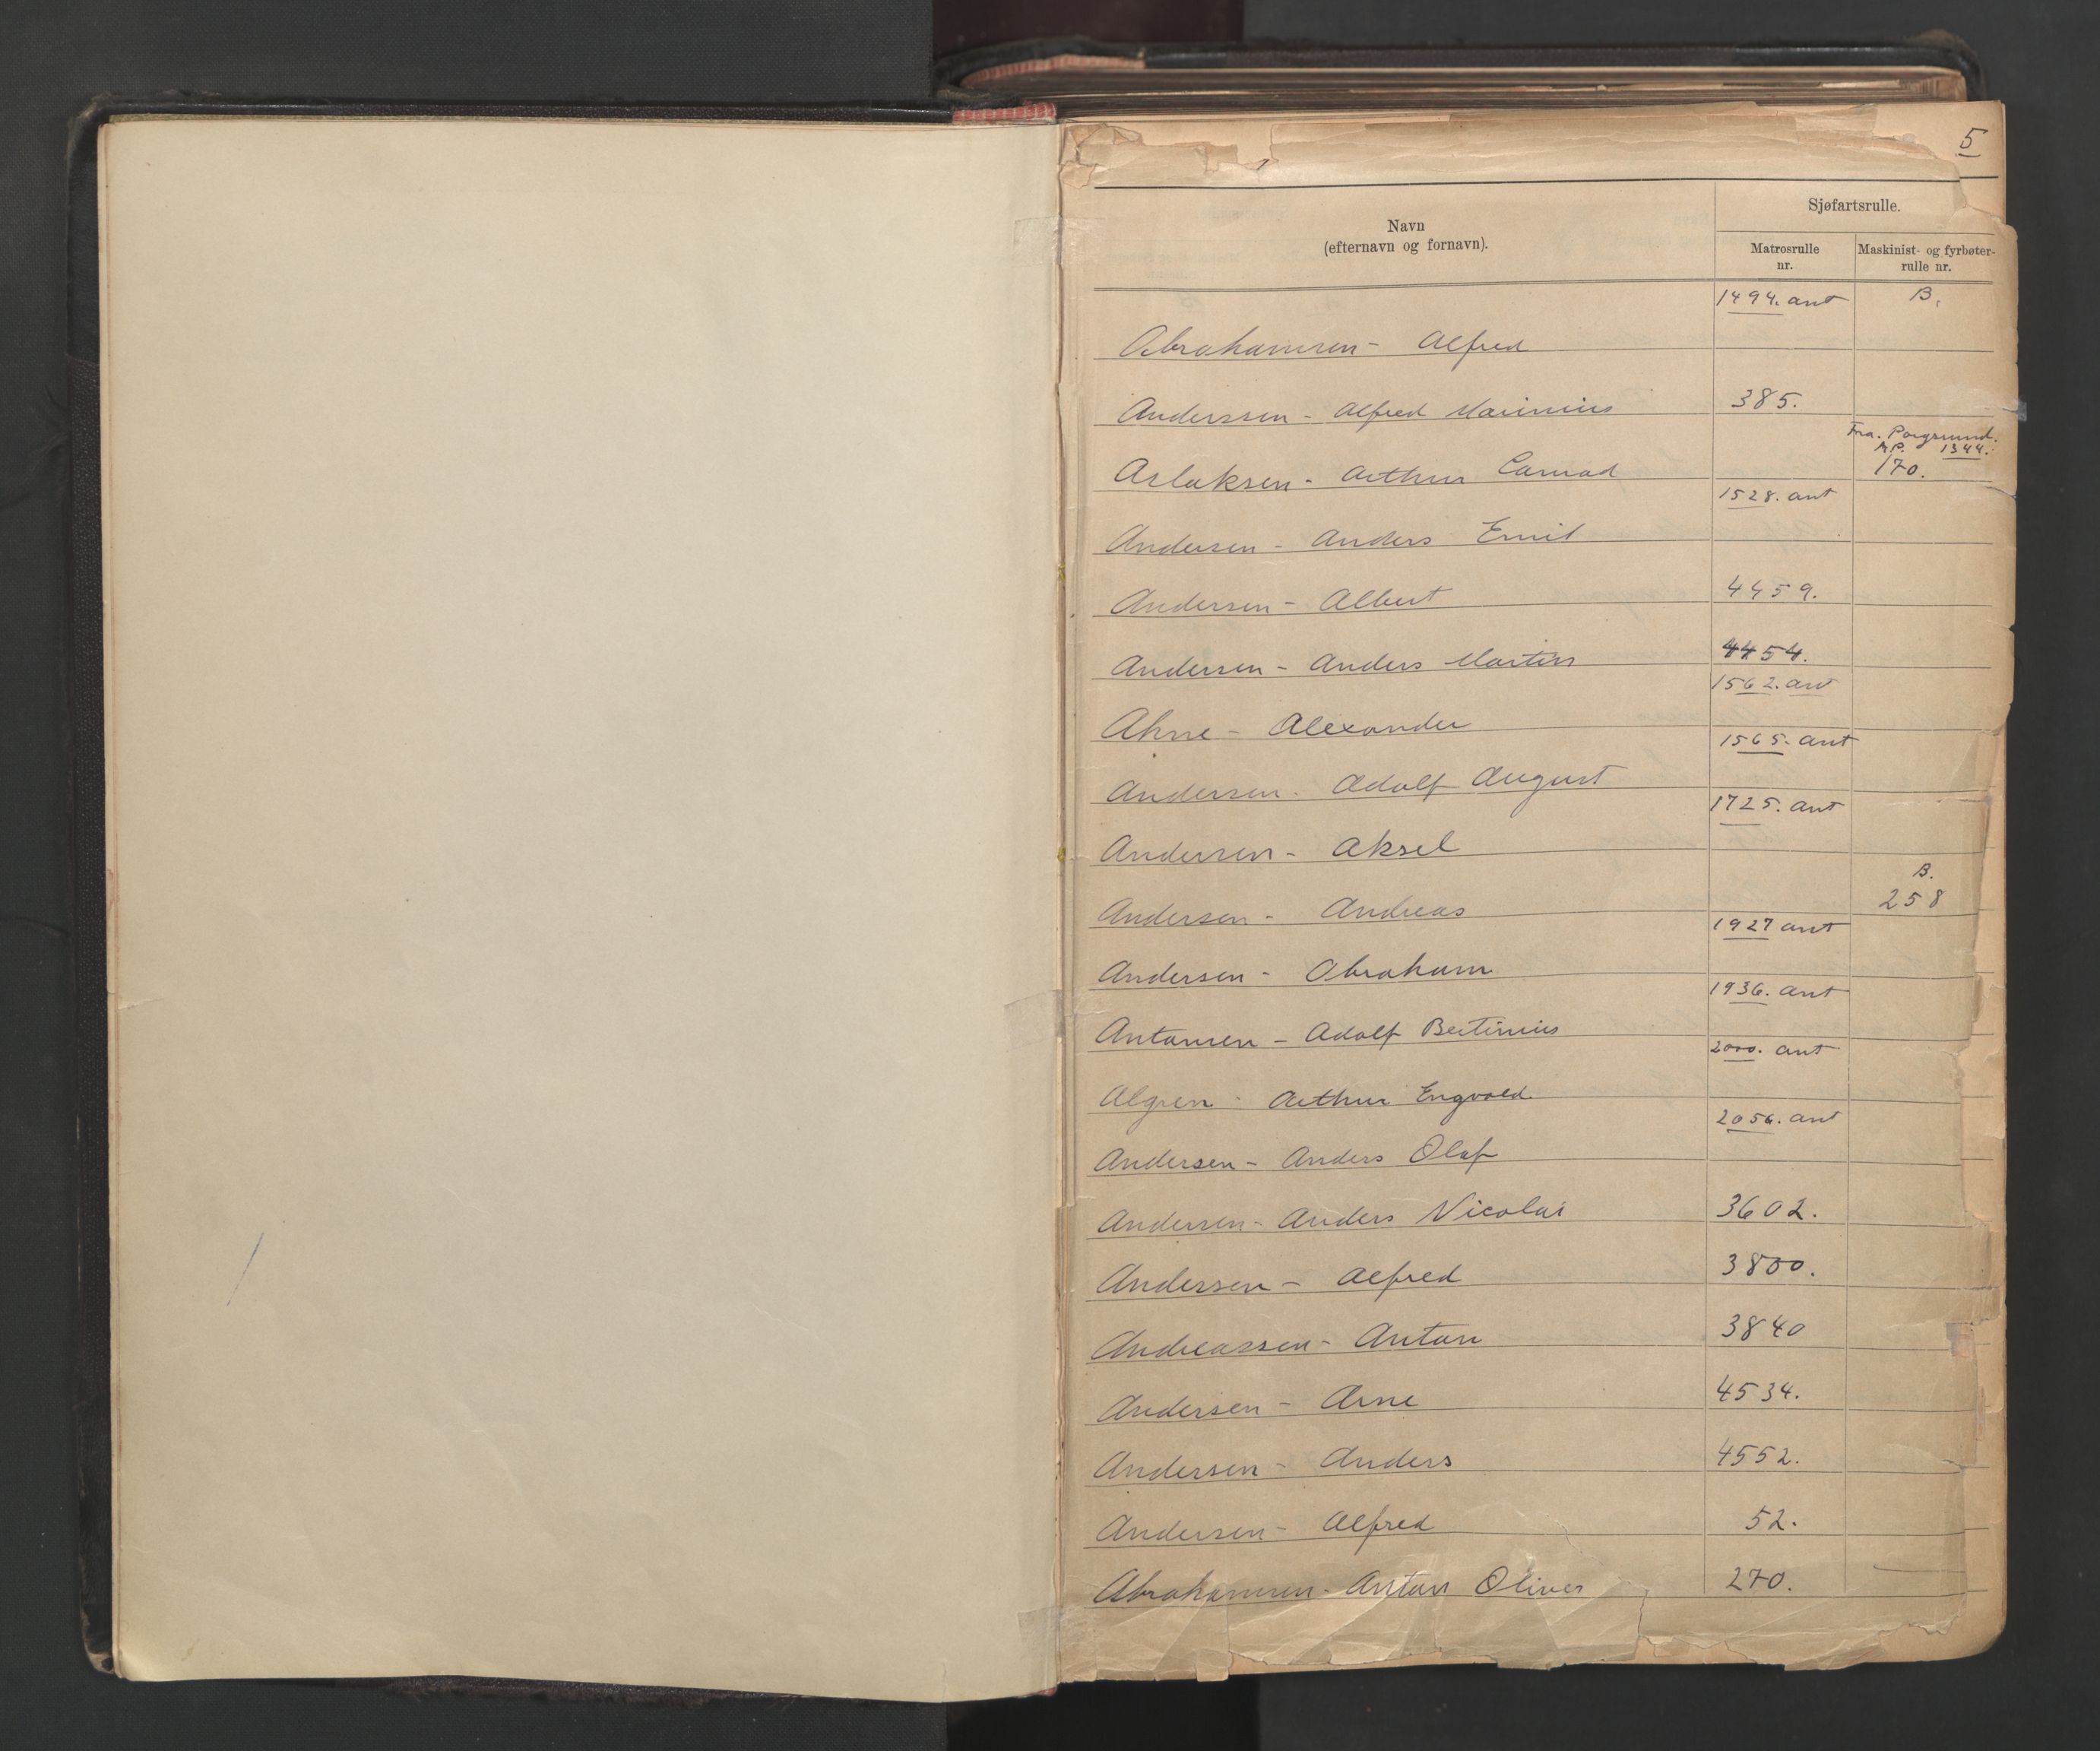 5
Navn
(efternavn og fornavn).
Sjøfartsrulle.
Matrosrulle
nr.
Maskinist- og fyrbøter-
rulle nr.
1494. ant B.
Abrahamsen - Alfred
Anderssen - Alfred Marinius 385.
Fra. Porgsrund.
A.P. 1344.
Aslaksen - Arthur Conrad 170.
1528. ant
Andersen - Anders Emil
Andersen - Albert 4459.
Andersen - Anders Martin 4454.
1562. ant
Ahne - Alexander
1565. ant
Andersen - Adolf August
1725. ant
Andersen - Aksel
B.
Andersen - Andreas 258
1927 ant
Andersen - Abraham
1936. ant
Antonsen - Adolf Bertinius
2000. ant
Algren - Arthur Engvald
2056. ant
Andersen - Anders Olaf
Andersen - Anders Nicolai 3602.
Andersen - Alfred 3800.
Andreassen - Anton 3840
Andersen - Arne 4534.
Andersen - Anders 4552.
Andersen - Alfred 52.
Abrahamsen - Anton Oliver 270.